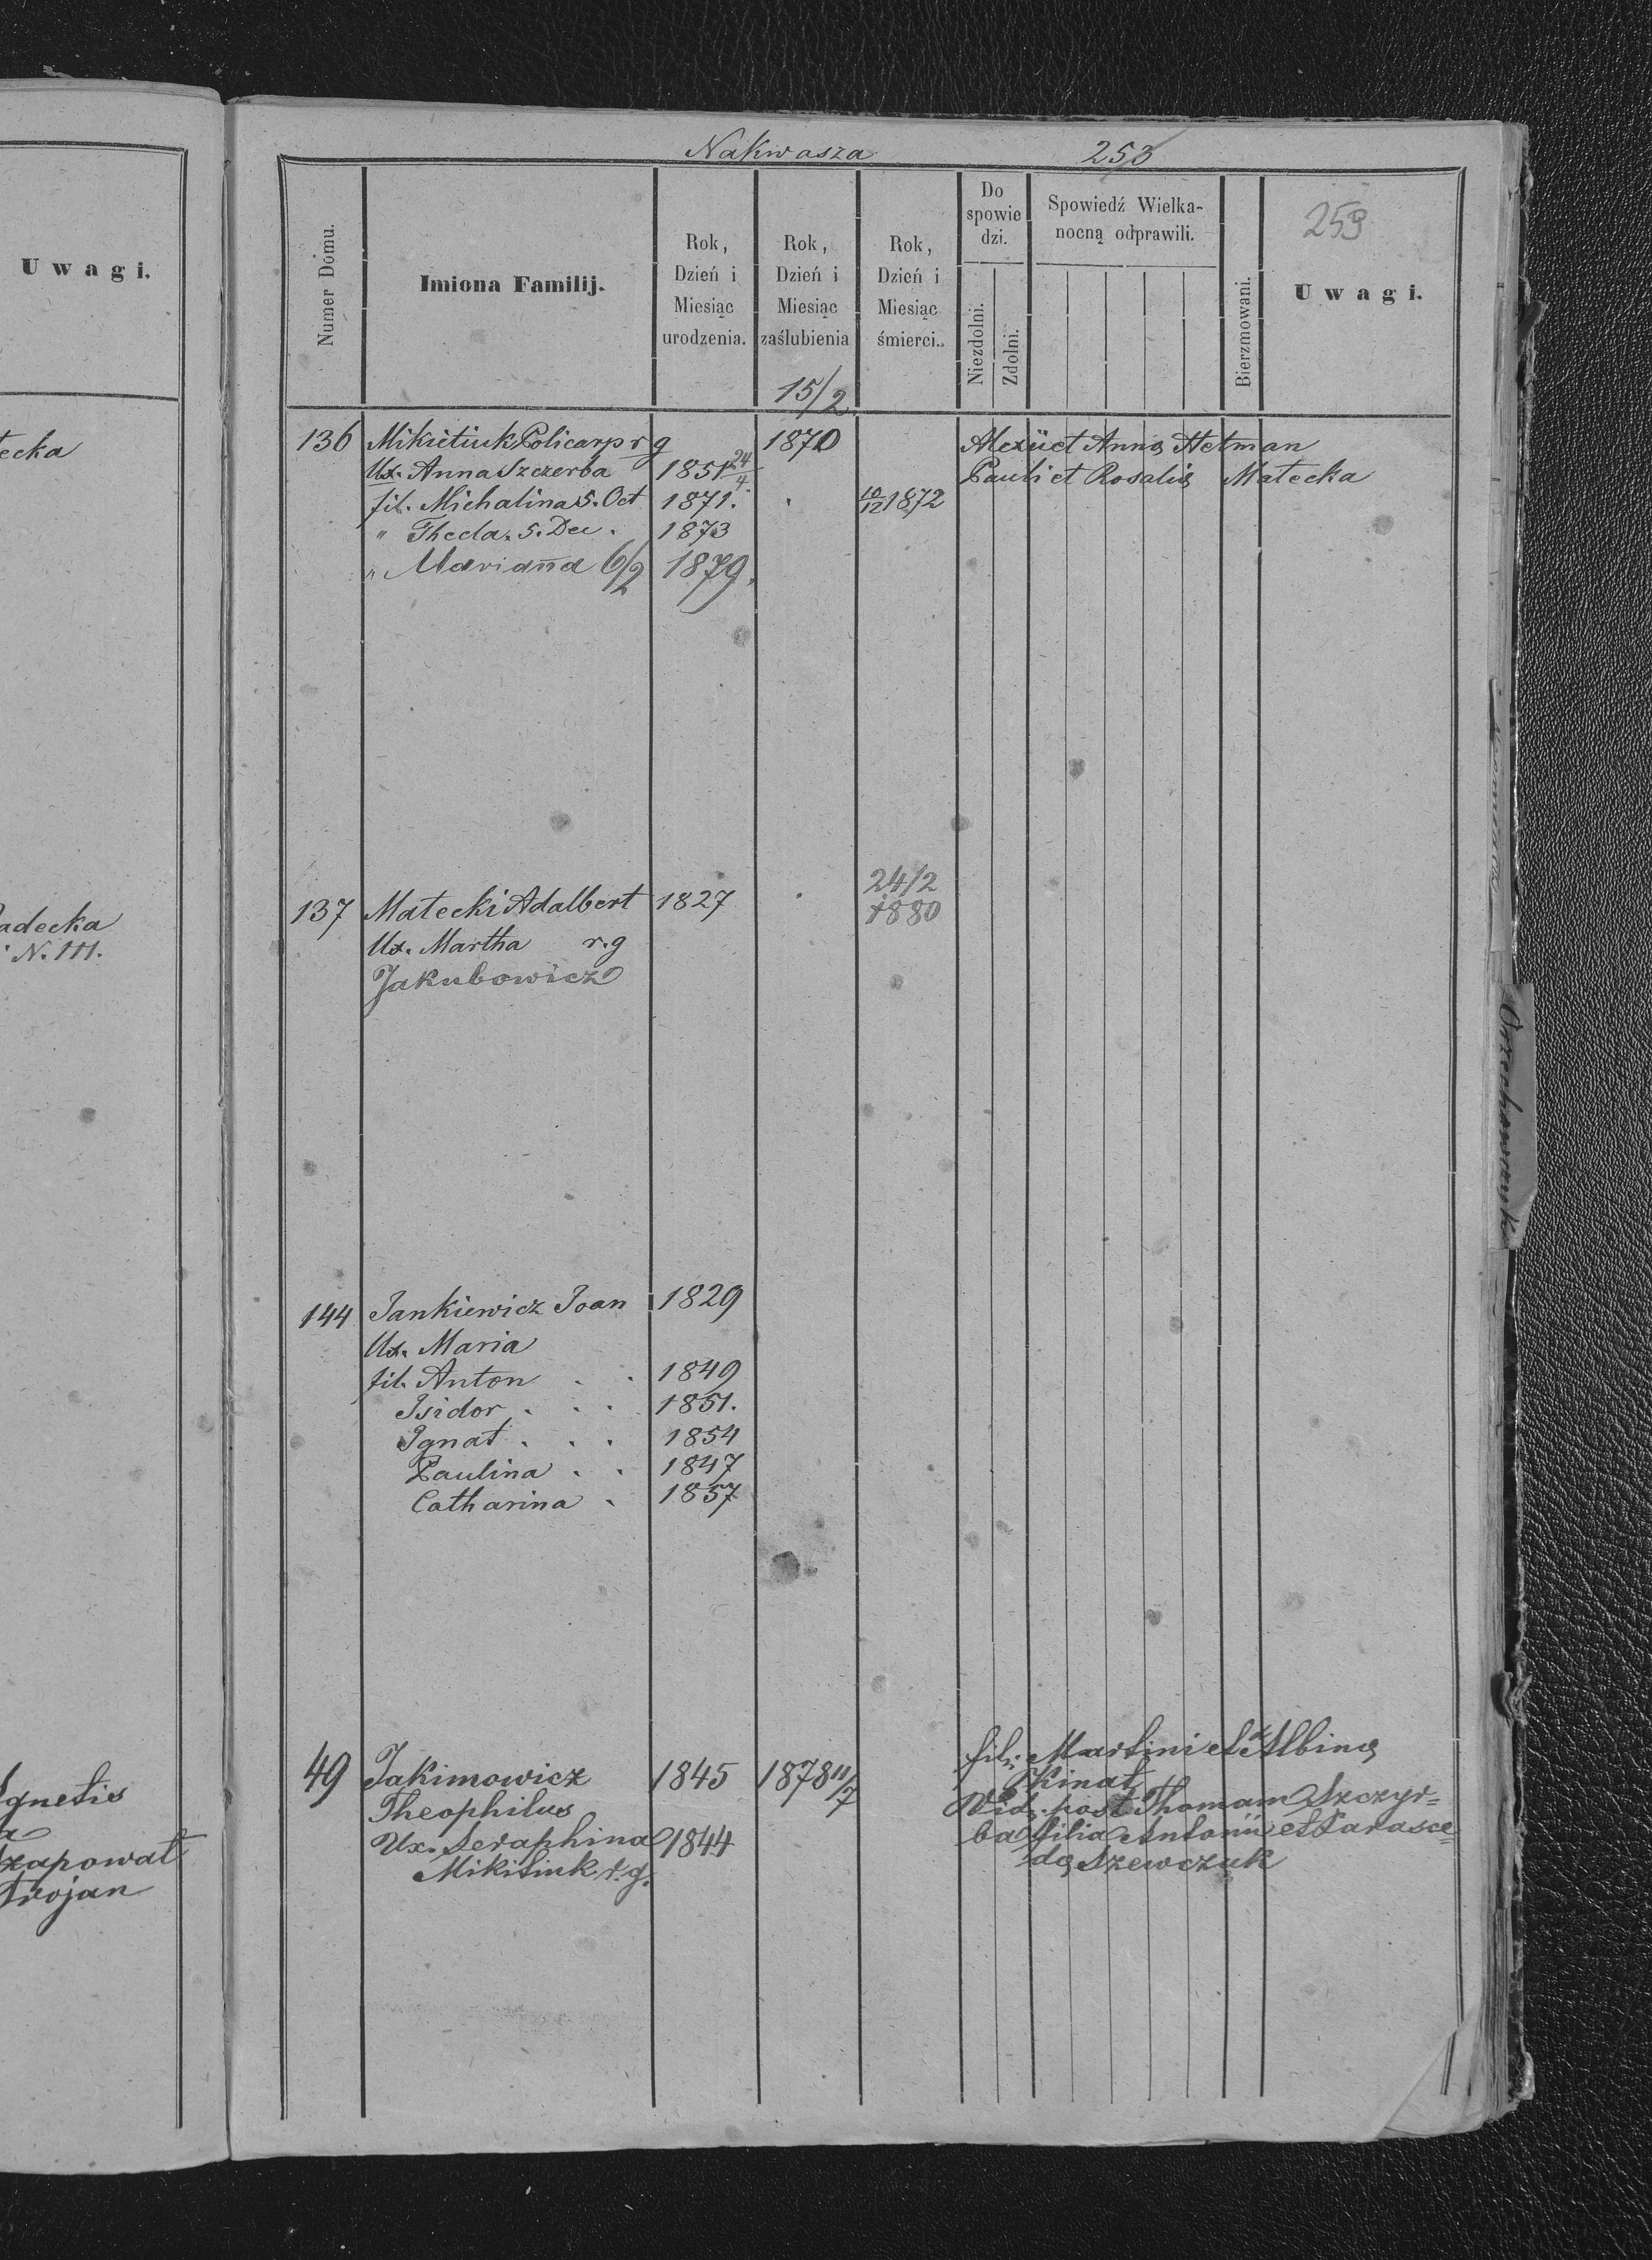 Uwagi.
ecka
adecka
N. 111.
gnetis
zapowat
Trojan
Nakwasza 253
259
Numer Domu.
Imiona Familij.
Rok, Dzień i Miesiąc urodzenia.
Rok, Dzień i Miesiąc zaślubienia
Rok, Dzień i Miesiąc śmierci..
Do spowie dzi.
Niezdolni.
Zdolni.
Spowiedź Wielka-
nocną odprawili.
Bierzmowani.
Uwagi.
15/2
136 Mikietiuk Policarp r g 1870 Alexii et Anna Hetman
Ux. Anna Szczerba 1851 24/4 Pauli et Rosalia Matecka
fil. Michalina 5. Oct 1871. 10/12 1872
" Thecla. 5. Dec. 1873
" Marianna 6/2 1879.
24/2
137 Matecki Adalbert 1827 1880
Ux. Martha r.g
Jakubowicz
144 Jankiewicz Joan 1829
Ux. Maria
fil. Anton . . 1849
Isidor . . . 1851.
Ignat . . . 1854
Paulina . . 1847
Catharina . 1857
49 Jakimowicz 1845 1878 11/7 fil. Martini et Albina
Kinat
Theophilus Vid. post Thomam Szczyr=
Ux. Seraphina 1844 ba filia Antonii et Parasce=
Mikitiuk r.g. da Szewczuk